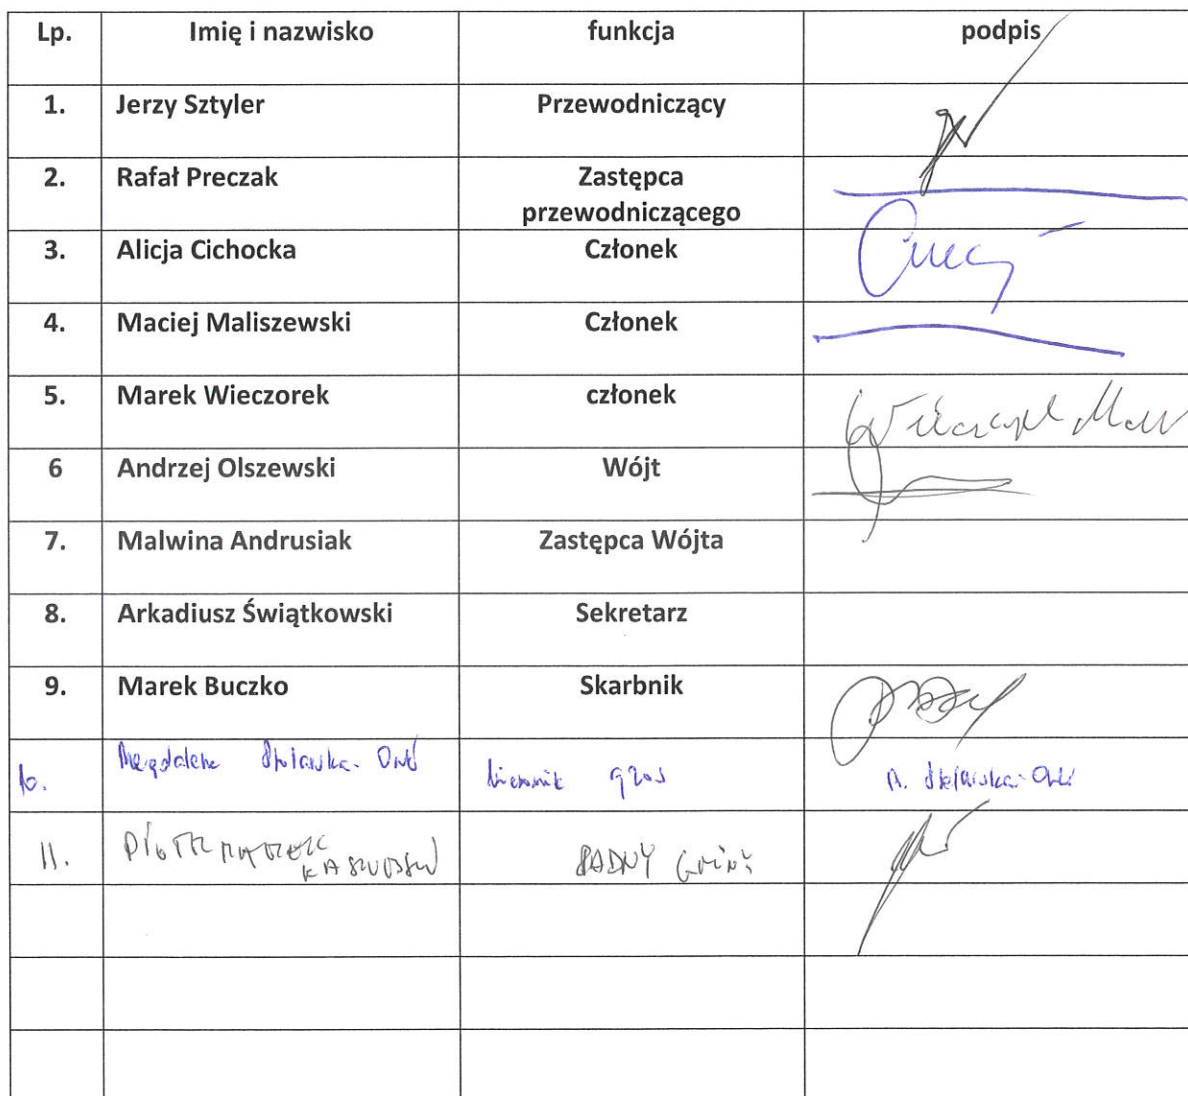 Lp. Imię i nazwisko funkcja podpis
1. Jerzy Sztyler Przewodniczący
2. Rafał Preczak Zastępca
przewodniczącego
3. Alicja Cichocka Członek
4. Maciej Maliszewski Członek
5. Marek Wieczorek członek
6 Andrzej Olszewski Wójt
7. Malwina Andrusiak Zastępca Wójta
8. Arkadiusz Świątkowski Sekretarz
9. Marek Buczko Skarbnik
10. Magdalena kierownik
11. PIOTR MAREK RADNY GMINY